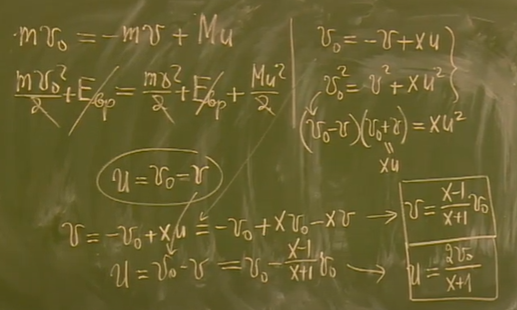 mv₀ = -mv + Mu
mv₀²/2 + E_бр = mv²/2 + E_бр + Mu²/2
v₀ = -v + xu
v₀² = v² + xu²
(v₀-v)(v₀+v) = xu²
xu
u = v₀ - v
v = -v₀ + xu = -v₀ + xv₀ - xv → v = x-1/x+1 v₀
u = v₀ - v = v₀ - x-1/x+1 v₀ → u = 2v₀/x+1